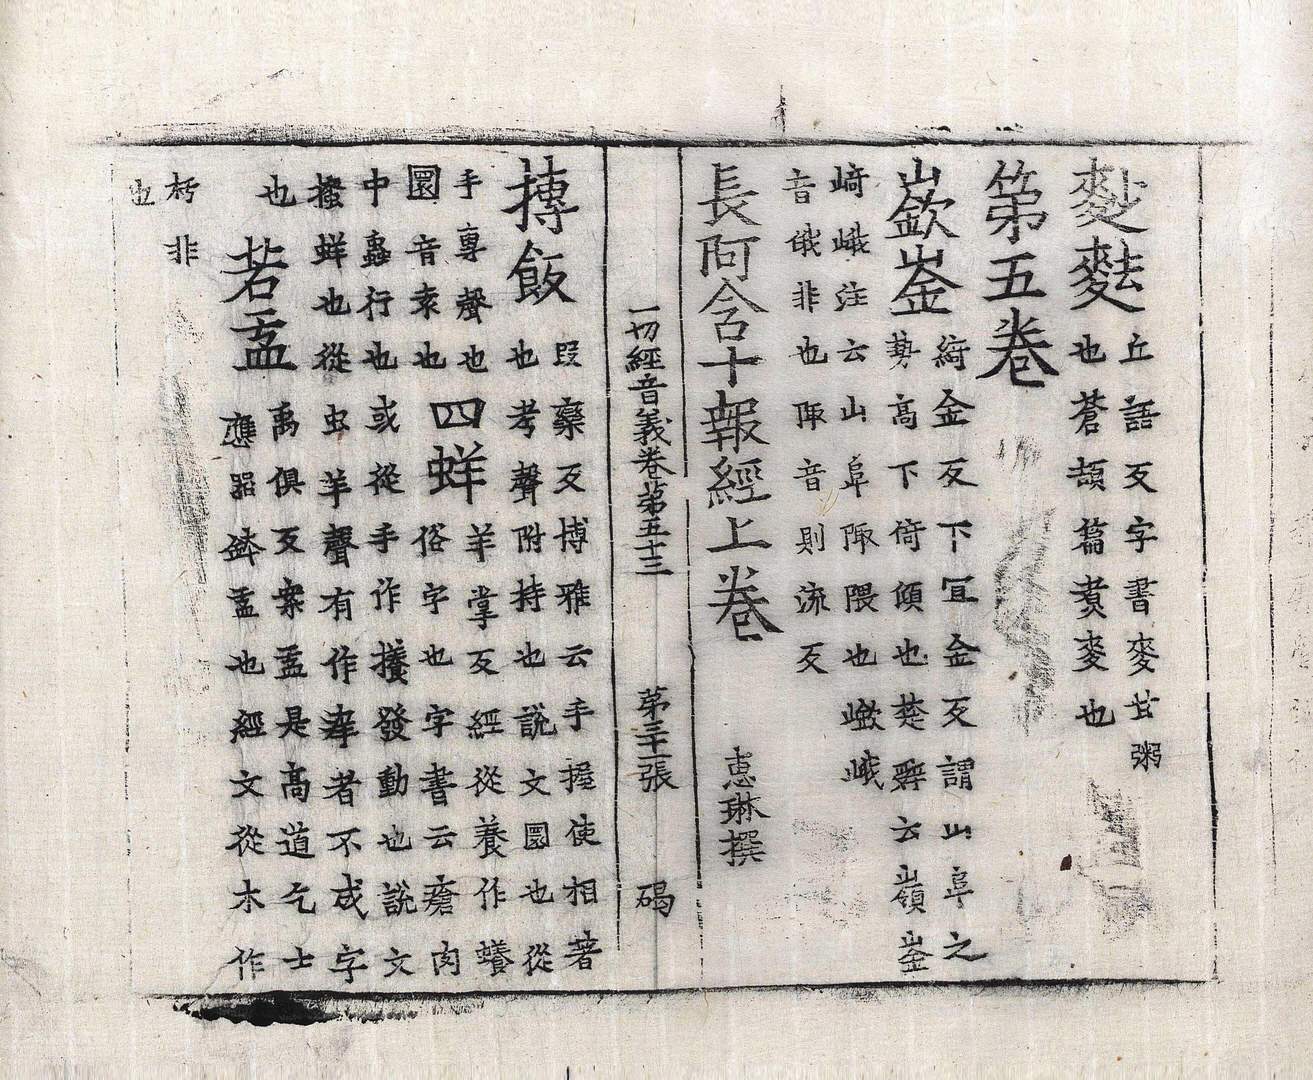 麨麩
丘語反字書麥甘粥
也蒼頡篇煑麥也
第五卷
嶔崟
綺金反下冝金反謂山阜之
勢高下倚傾也楚辭云嶺崟
崎峨注云山阜陬隈也嶔峨
音俄非也陬音則流反
長阿含十報經上卷 恵琳撰
一切經音義卷第五十三 第三十二張 碣
摶飯
段欒反博雅云手握使相著
也考聲附持也說文圜也從
手專聲也
圜音袁也
四蛘
羊掌反經從養作蠭
俗字也字書云瘡肉
中蟲行也或從手作攁發動也說文
搔蛘也從虫羊聲有作痒者不成字
也
若盂
禹俱反案盂是高道乞士
應器鉢盂也經文從木作
杇非
也